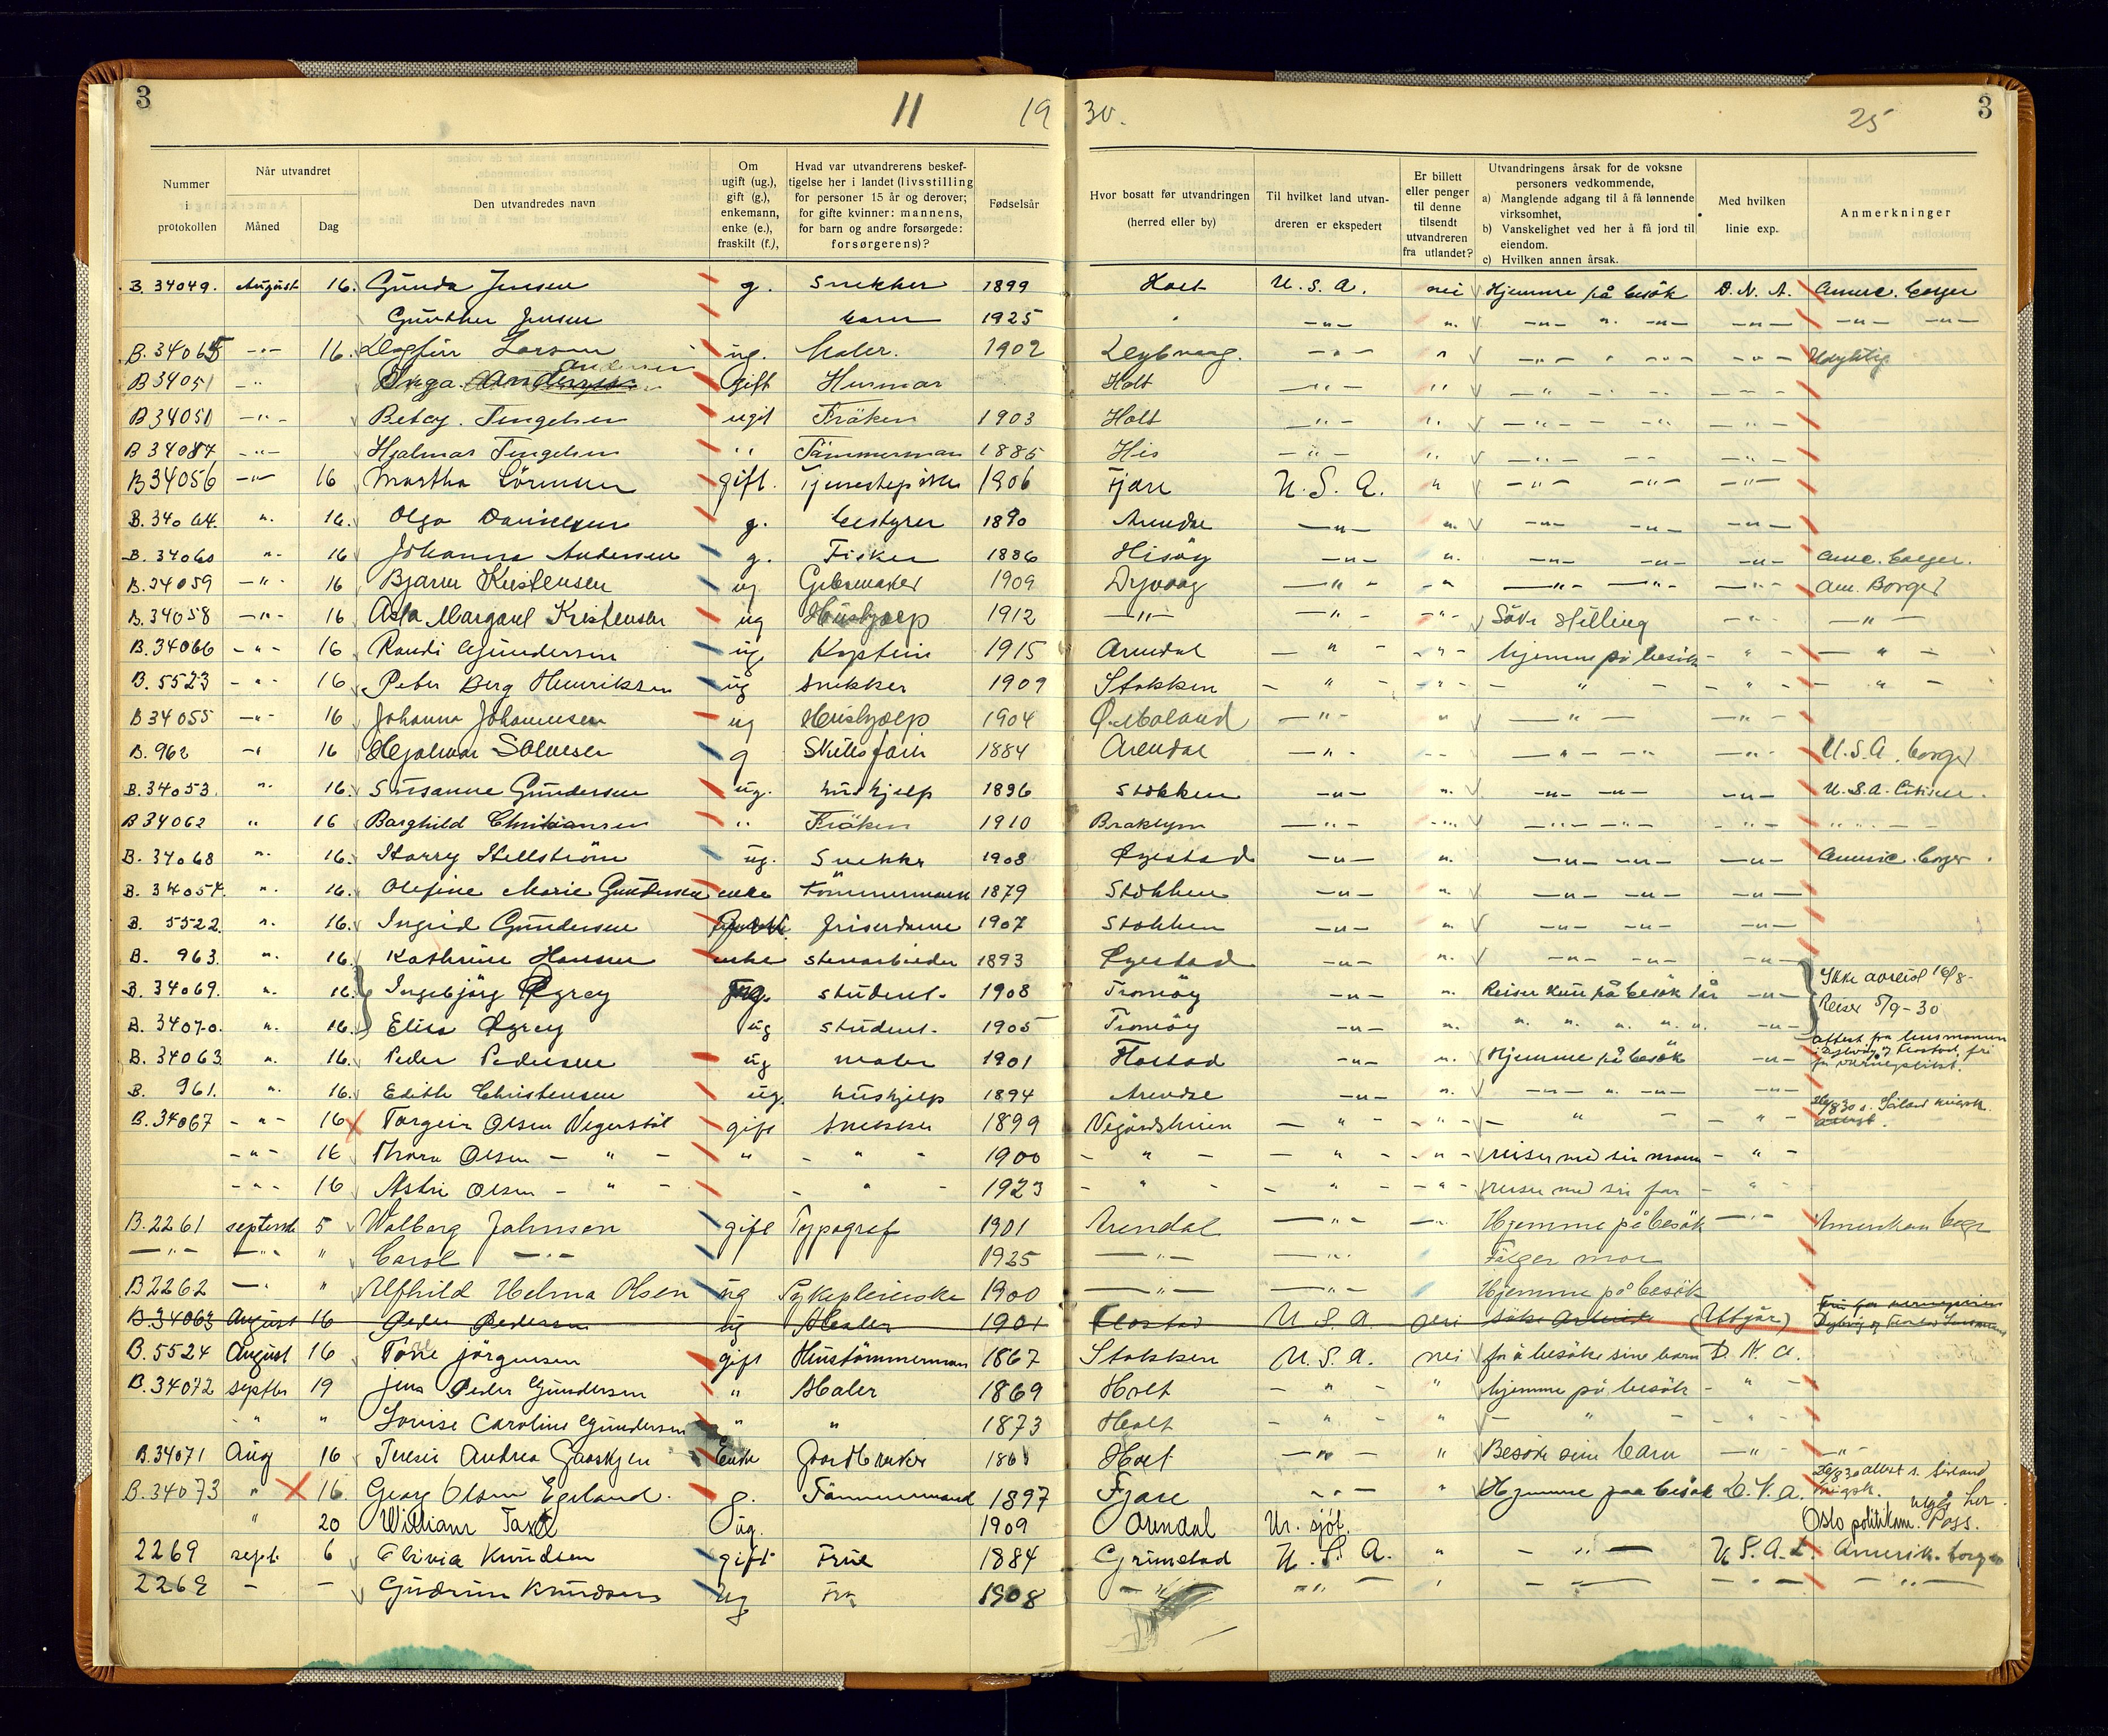 3 11 19 30. 25 3
Nummer i protokollen | Når utvandret | Måned | Dag | Den utvandredes navn | Om ugift (ug.), gift (g.), enkemann, enke (e.), fraskilt (f.), | Hvad var utvandrerens beskeftigelse her i landet (livsstilling for personer 15 år og derover; for gifte kvinner: mannens, for barn og andre forsørgede: forsørgerens)? | Fødselsår | Hvor bosatt før utvandringen (herred eller by) | Til hvilket land utvandreren er ekspedert | Er billett eller penger til denne tilsendt utvandreren fra utlandet? | Utvandringens årsak for de voksne personers vedkommende, a) Manglende adgang til å få lønnende virksomhet, b) Vanskelighet ved her å få jord til eiendom. c) Hvilken annen årsak. | Med hvilken linie exp. | Anmerkninger
B. 34049. August 16. Gunda Jensen g. Snekker 1899 Holt U.S.A. nei Hjemme på besök D.N.A. Americ. borger
Gunther Jensen barn 1925 " —"— ". —"— ". —"— —"— —"— —"—
B. 34065 —"— 16. Dagfinn Larson ug. Maler. 1902 —"— " —"— " —"— —"—
B 34051 —" Inga Andersen gift Husmor Holt —"— " —"— —"—
B 34050 —"— Betsy Tengelsen ugift Fröken 1903 Holt —"— " —"— —"— —"—
B 34087 —"— Hjalmar Tengelsen " Tömmerman 1885 His —"— " —"— —"— —"—
B 34056 —"— 16 Martha Sörensen gift. Tjenestepike 1906 Fjære U.S.A. " —"— —"— —"—
B. 34064. ". 16. Olga Danielsen g. bestyrer 1890 Arendal —"— ". —"— —"— —"—
B. 34060 ". 16 Johanna Andersen g. Fisker 1886 Hisöy —"— ". —"— —"— —"— Ame. borger.
B. 34059 —"— 16 Bjarne Kristensen ug 1909 Dypvaag —"— —" —"— —"— —"— Am. Borger
B. 34058 —"— 16 Asta Margaret Kristensen ug Hushjælp 1912 —"— —"— —"— Söke Stilling —"— —"—
B. 34066 —"— 16 Randi Gundersen ug. Kaptein 1915 Arendal —"— —"— hjemme på besök —"— —"—
B. 5523 —"— 16 Peter Berg Henriksen ug snekker 1909 Stokken —"— —"— —"— —"— —"—
B 34055 —"— 16 Johanna Johannesen ug Hushjælp 1904 Ö. Moland —"— " —"— —"—
B. 962 —" 16 Hjalmar Solvesen g 1884 Arendal —"— —"— —"— —"— U.S.A. borger
B. 34053. ". 16. Susanne Gundersen ug. hushjelp 1896 Stokken —"— ". —"— —"— —"— U.S.A. Citisen.
B 34062 " 16 Borghild Christiansen " Fröken 1910 Broklyn —"— —"— —"— —"— —"— "
B. 34068 ". 16. Harry Hellström ug. Snekker 1908 Øyestad —"— ". —"— —"— —"— Americ. borger.
B. 34054. ". 16. Olefine Marie Gundersen enke tömmermann 1879 Stokken —"— ". —"— —"— —"—
B. 5522. ". 16. Ingrid Gundersen friserdame 1907 Stokken —"— ". —"— —"— —"—
B. 963. ". 16. Kathrine Hansen enke stenarbeider 1893 Øyestad —"— ". —"— —"— —"—
B. 34069. ". 16. Ingebjörg Øgrey ug. student. 1908 Tromöy —"— ". Reiser kun på besök 1 år —"— Ikke avreist 16/8-
B. 34070. ". 16. Elise Øgrey ug student. 1905 Tromöy —"— ". ". ". ". ". —"— Reiser 5/9-30
B. 34063. ". 16. Peder Pedersen ug maler 1901 Flostad —"— ". Hjemme på besök —"— attest fra lensmannen
B. 961. ". 16. Edith Christensen ug. hushjelp 1894 Arendal —"— ". —"— ". —"— —"—
B. 34067 —"— 16 Torgeir Olsen Vegerstöl gift snekker 1899 Vegårdsheien —"— —"— —"— —"—
—"— 16 Thora Olsen —"— " —"— 1900 —"— —"— —"— reiser med sin mann —"—
—"— 16 Astri Olsen —"— —"— 1923 —"— —"— —"— reiser med sin far —"—
B. 2261 septemb 5 Valborg Johnsen gift Typograf 1901 Arendal —"— —" Hjemme på besök —"— Amerikan borger
—"— —"— " Carol —"— 1925 —"— —"— Fölger mor
B 2262 —" " Alfhild Helma Olsen ug Sykepleierske 1900 —"— —"— Hjemme på besök
B. 34063 August 16 Peder Pedersen ug Maler 1901 Flostad U.S.A. nei söke arbeide (Utgår)
B. 5524 August 16 Torre Jörgensen gift Hustömmerman 1867 Stokken U.S.A. nei for å besöke sine barn D.N.A.
B. 34072 septbr 19 Jens Peder Gundersen " Maler 1869 Holt —"— " hjemme på besök —"—
" " Lovise Caroline Gundersen " " 1873 Holt —"— " —"— —"—
B. 34071 Aug 16 Andrea Enke Gårdbruker Holt —"— " Besöke sine barn —"— —"—
B. 34073 " 16. Georg Olsen Egeland. g. Tömmermand 1897 Fjære —"— " Hjemme paa besök D.N.A.
" 20 William ug. 1909 Arendal Ur. sjöf. Oslo politikam. Pass.
2269 sept. 6 Olivia Knudsen gift Frue 1884 Grimstad U.S.A. " —"— U.S.A.L. Amerik. borger
2268 — — Gudrun Knudsen ug Frk 1908 —"— —"— " —"— —"— —"—